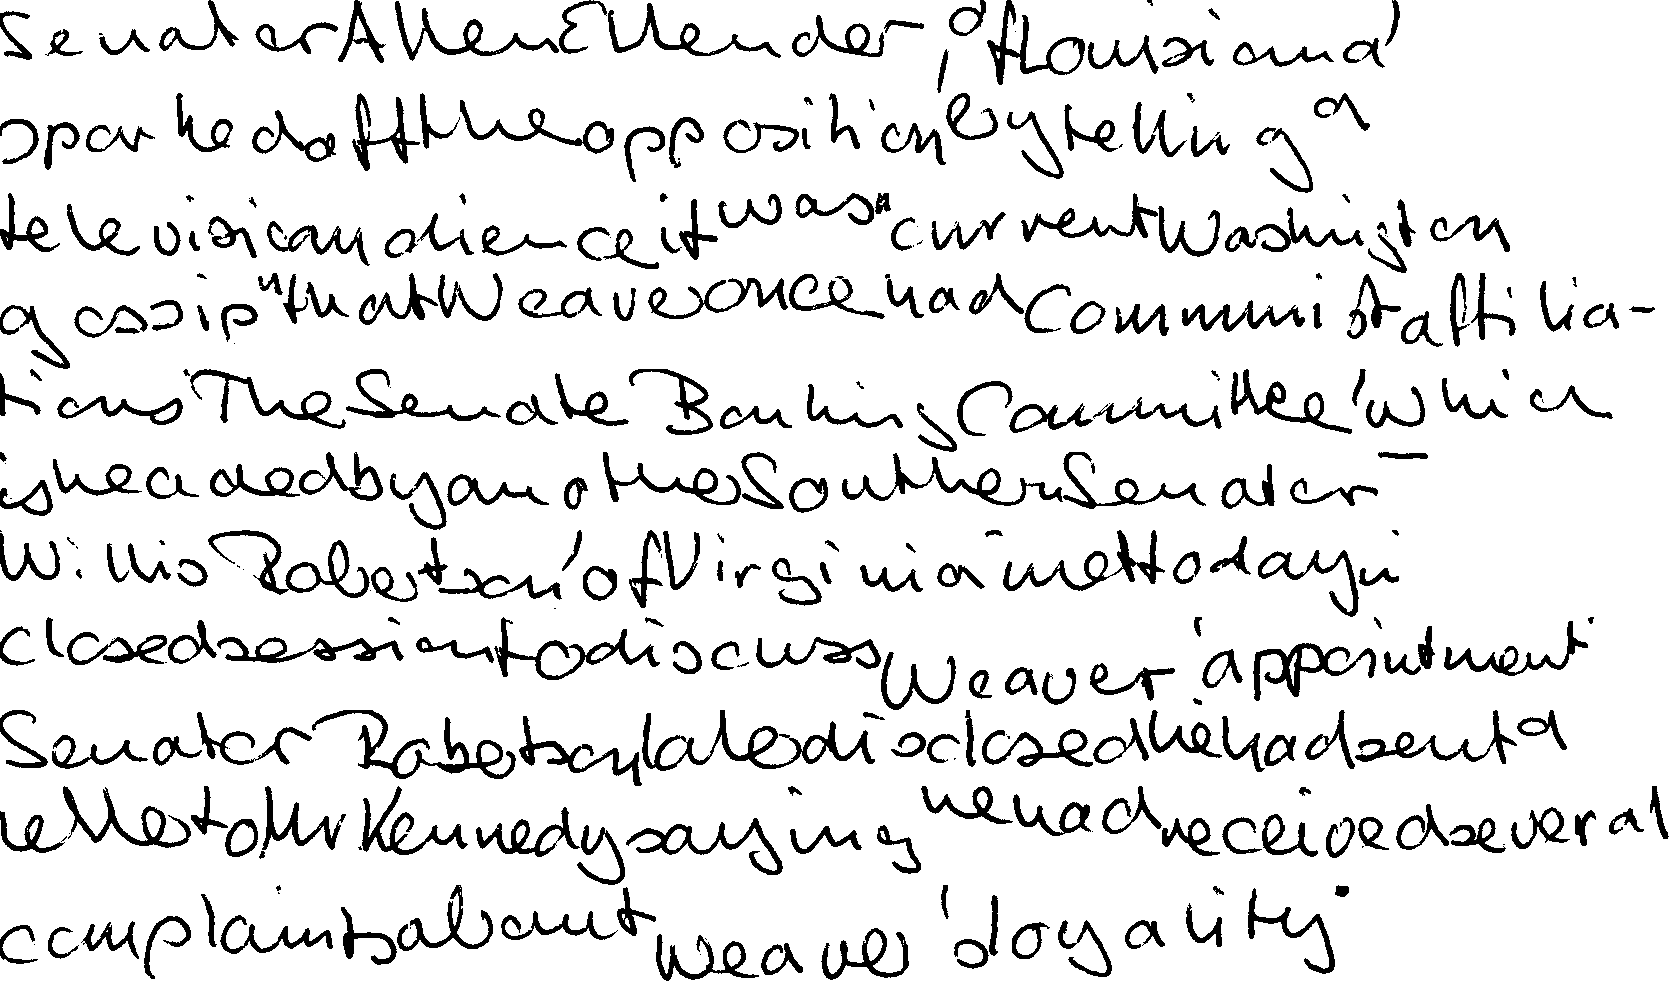 Senator Allen Ellender, of Louisiana,
sparked off the opposition by telling a
television audience it was "current Washington
gossip" that Weaver once had Communist affilia-
tions. The Senate Banking Committee, which
is headed by another Southern Senator -
Willis Robertson, of Virginia - met today in
closed session to discuss Weaver's appointment.
Senator Robertson later disclosed he had sent a
letter to Mr Kennedy saying he had received several
complaints about Weaver's loyality.